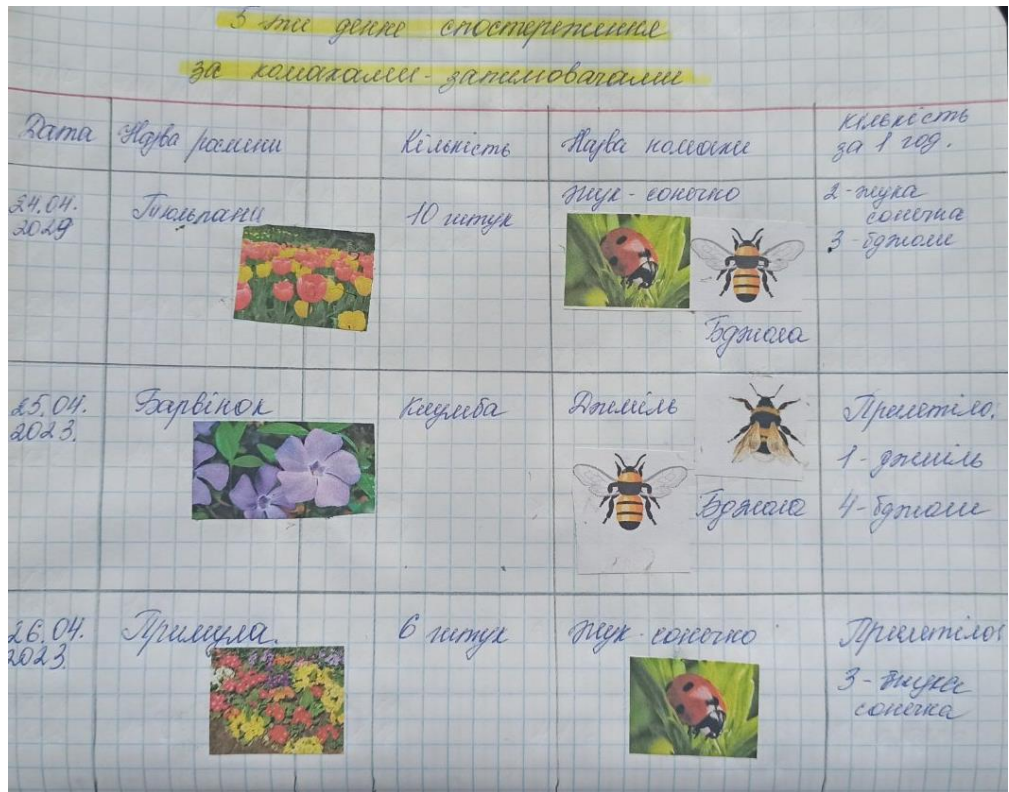 5-ти денне спостереження
за комахами-запилювачами
Дата
Назва рослини
Кількість
Назва комахи
кількість
за 1 год.
24.04.
Тюльпани
10 штук
Жук-сонечко
Бджола
2-жука
сонечка
3-бджоли
25.04.
2023.
Барвінок
Клумба
Джміль
Бджола
Прилетіло.
1-джміль
4-бджоли
26.04.
2023
Примула.
6 штук
Жук-сонечко
Прилетіло
3-жука
сонечка